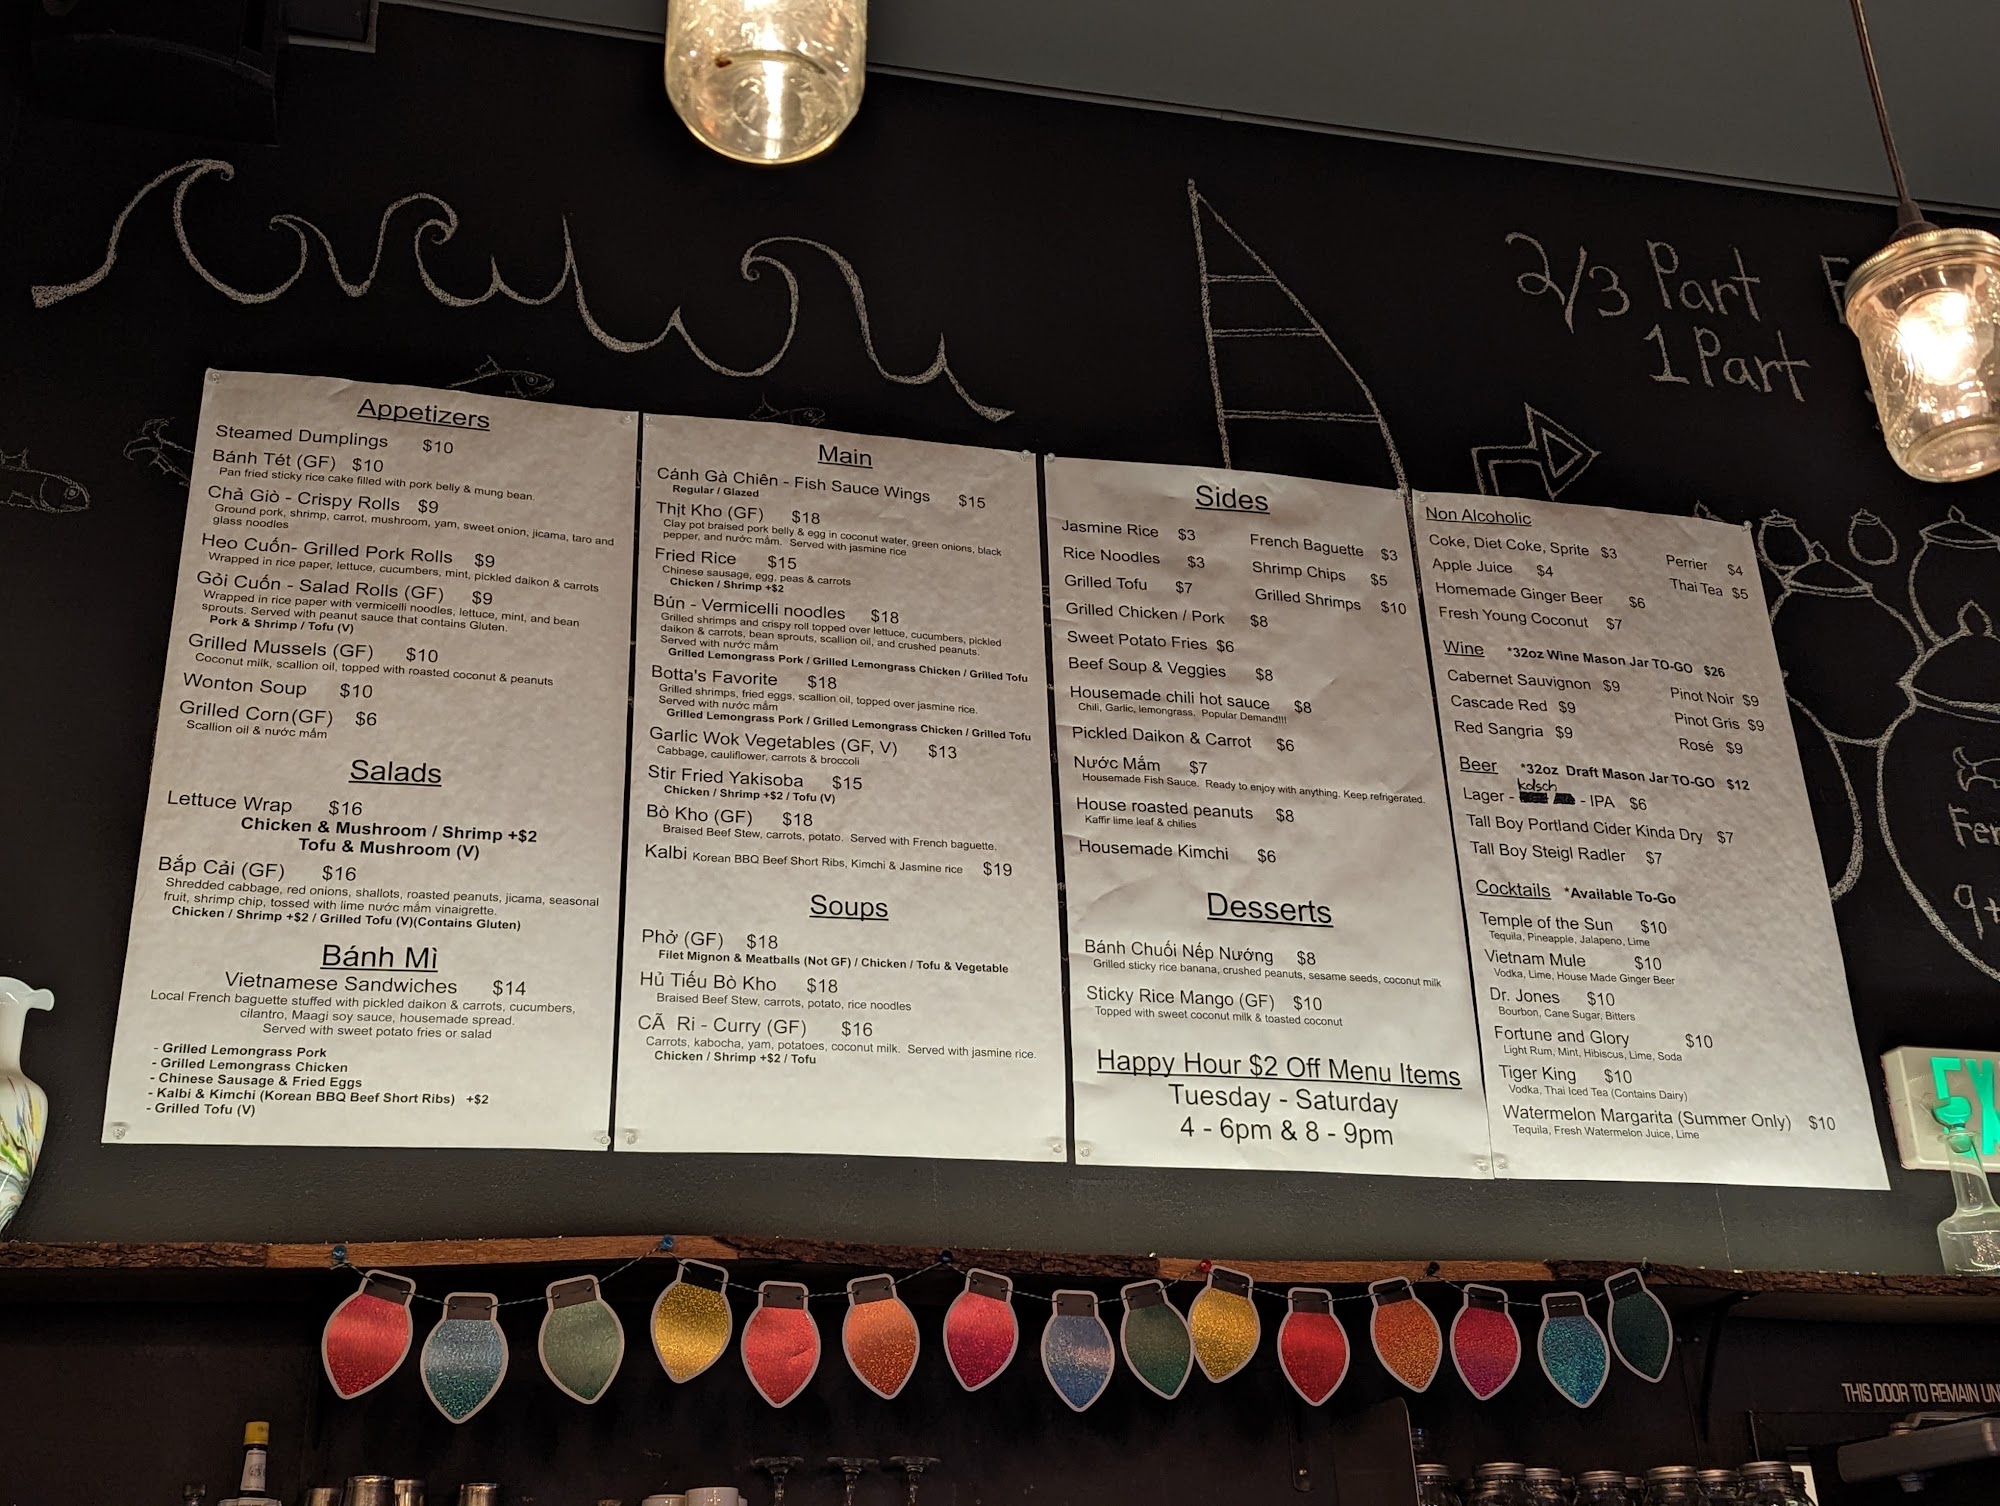 2/3 Part
1 Part
Appetizers
Steamed Dumplings $10
Bánh Tét (GF) $10
Pan fried sticky rice cake filled with pork belly & mung bean.
Chả Giò - Crispy Rolls $9
Ground pork, shrimp, carrot, mushroom, yam, sweet onion, jicama, taro and
glass noodles
Heo Cuốn- Grilled Pork Rolls $9
Wrapped in rice paper, lettuce, cucumbers, mint, pickled daikon & carrots
Gỏi Cuốn - Salad Rolls (GF) $9
Wrapped in rice paper with vermicelli noodles, lettuce, mint, and bean
sprouts. Served with peanut sauce that contains Gluten.
Pork & Shrimp / Tofu (V)
Grilled Mussels (GF) $10
Coconut milk, scallion oil, topped with roasted coconut & peanuts
Wonton Soup $10
Grilled Corn(GF) $6
Scallion oil & nước mắm
Salads
Lettuce Wrap $16
Chicken & Mushroom / Shrimp +$2
Tofu & Mushroom (V)
Bắp Cải (GF) $16
Shredded cabbage, red onions, shallots, roasted peanuts, jicama, seasonal
fruit, shrimp chip, tossed with lime nước mắm vinaigrette.
Chicken / Shrimp +$2 / Grilled Tofu (V)(Contains Gluten)
Bánh Mì
Vietnamese Sandwiches $14
Local French baguette stuffed with pickled daikon & carrots, cucumbers,
cilantro, Maagi soy sauce, housemade spread.
Served with sweet potato fries or salad
- Grilled Lemongrass Pork
- Grilled Lemongrass Chicken
- Chinese Sausage & Fried Eggs
- Kalbi & Kimchi (Korean BBQ Beef Short Ribs) +$2
- Grilled Tofu (V)
Main
Cánh Gà Chiên - Fish Sauce Wings $15
Regular / Glazed
Thịt Kho (GF) $18
Clay pot braised pork belly & egg in coconut water, green onions, black
pepper, and nước mắm. Served with jasmine rice
Fried Rice $15
Chinese sausage, egg, peas & carrots
Chicken / Shrimp +$2
Bún - Vermicelli noodles $18
Grilled shrimps and crispy roll topped over lettuce, cucumbers, pickled
daikon & carrots, bean sprouts, scallion oil, and crushed peanuts.
Served with nước mắm
Grilled Lemongrass Pork / Grilled Lemongrass Chicken / Grilled Tofu
Botta's Favorite $18
Grilled shrimps, fried eggs, scallion oil, topped over jasmine rice.
Served with nước mắm
Grilled Lemongrass Pork / Grilled Lemongrass Chicken / Grilled Tofu
Garlic Wok Vegetables (GF, V) $13
Cabbage, cauliflower, carrots & broccoli
Stir Fried Yakisoba $15
Chicken / Shrimp +$2 / Tofu (V)
Bò Kho (GF) $18
Braised Beef Stew, carrots, potato. Served with French baguette.
Kalbi Korean BBQ Beef Short Ribs, Kimchi & Jasmine rice $19
Soups
Phở (GF) $18
Filet Mignon & Meatballs (Not GF) / Chicken / Tofu & Vegetable
Hủ Tiếu Bò Kho $18
Braised Beef Stew, carrots, potato, rice noodles
CÃ Ri - Curry (GF) $16
Carrots, kabocha, yam, potatoes, coconut milk. Served with jasmine rice.
Chicken / Shrimp +$2 / Tofu
Sides
Jasmine Rice $3 French Baguette $3
Rice Noodles $3 Shrimp Chips $5
Grilled Tofu $7 Grilled Shrimps $10
Grilled Chicken / Pork $8
Sweet Potato Fries $6
Beef Soup & Veggies $8
Housemade chili hot sauce $8
Chili, Garlic, lemongrass. Popular Demand!!!
Pickled Daikon & Carrot $6
Nước Mắm $7
Housemade Fish Sauce. Ready to enjoy with anything. Keep refrigerated.
House roasted peanuts $8
Kaffir lime leaf & chilies
Housemade Kimchi $6
Desserts
Bánh Chuối Nếp Nướng $8
Grilled sticky rice banana, crushed peanuts, sesame seeds, coconut milk
Sticky Rice Mango (GF) $10
Topped with sweet coconut milk & toasted coconut
Happy Hour $2 Off Menu Items
Tuesday - Saturday
4 - 6pm & 8 - 9pm
Non Alcoholic
Coke, Diet Coke, Sprite $3 Perrier $4
Apple Juice $4 Thai Tea $5
Homemade Ginger Beer $6
Fresh Young Coconut $7
Wine *32oz Wine Mason Jar TO-GO $26
Cabernet Sauvignon $9 Pinot Noir $9
Cascade Red $9 Pinot Gris $9
Red Sangria $9 Rosé $9
Beer *32oz Draft Mason Jar TO-GO $12
kolsch
Lager - - IPA $6
Tall Boy Portland Cider Kinda Dry $7
Tall Boy Steigl Radler $7
Cocktails *Available To-Go
Temple of the Sun $10
Tequila, Pineapple, Jalapeno, Lime
Vietnam Mule $10
Vodka, Lime, House Made Ginger Beer
Dr. Jones $10
Bourbon, Cane Sugar, Bitters
Fortune and Glory $10
Light Rum, Mint, Hibiscus, Lime, Soda
Tiger King $10
Vodka, Thai Iced Tea (Contains Dairy)
Watermelon Margarita (Summer Only) $10
Tequila, Fresh Watermelon Juice, Lime
THIS DOOR TO REMAIN